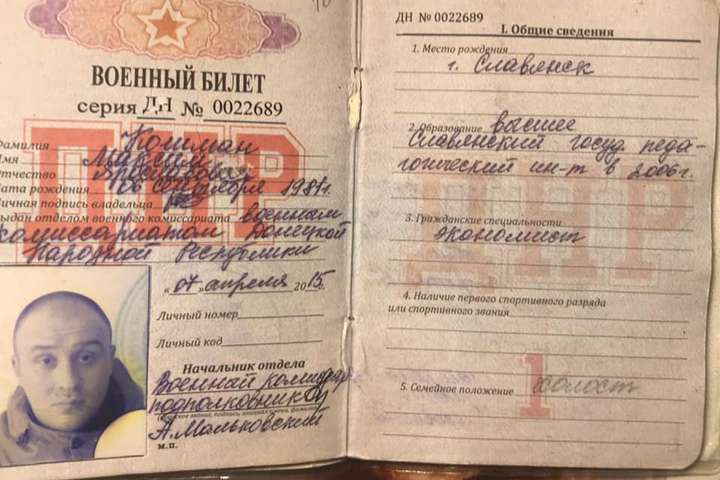 ВОЕННЫЙ БИЛЕТ
серия ДН № 0022689
Фамилия Кошман
Имя Максим
Отчество Ярославович
Дата рождения 06 сентября 1981г.
Личная подпись владельца
Выдан отделом военного комиссариата военным
комиссариатом Донецкой
Народной Республики
„07„ апреля 2015г.
Личный номер
Личный код
Начальник отдела
Военный комиссар
подполковник
А.Мальковский
м.п.
ДН № 0022689
I. Общие сведения
1. Место рождения
г. Славянск
2. Образование высшее
Славянский госуд педа-
гогический ин-т в 2006г.
3. Гражданские специальности
экономист
4. Наличие первого спортивного разряда
или спортивного звания
5. Семейное положение холост
ДНР
ДНР
1